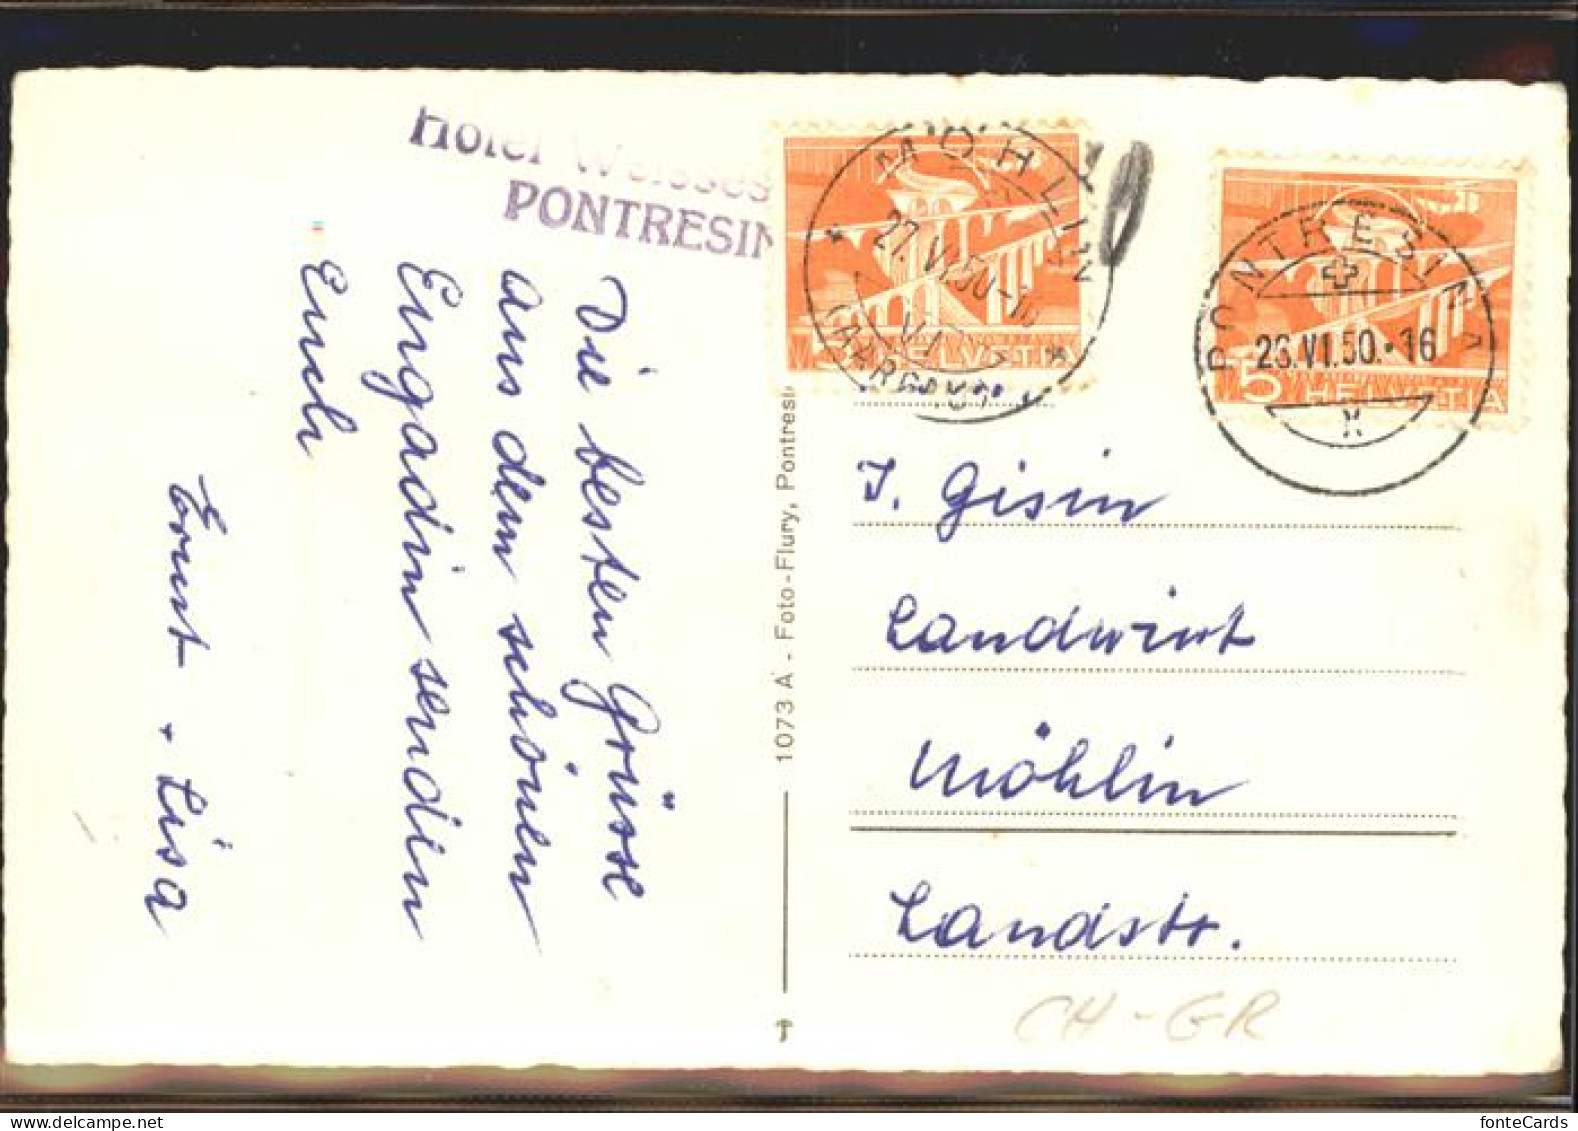 Hotel Weisses
PONTRESIN
Die besten Grüsse
aus dem schönen
Engadin senden
Euch
Ernst + Lisa
1073 A - Foto-Flury, Pontresi
MÖHLIN
27.VI.50-
(AARGAU)
5 HELVETIA
PONTRESINA
26.VI.50.-16
5 HELVETIA
J. Gisin
Landwirt
Möhlin
Landstr.
CH-GR
fonteCards